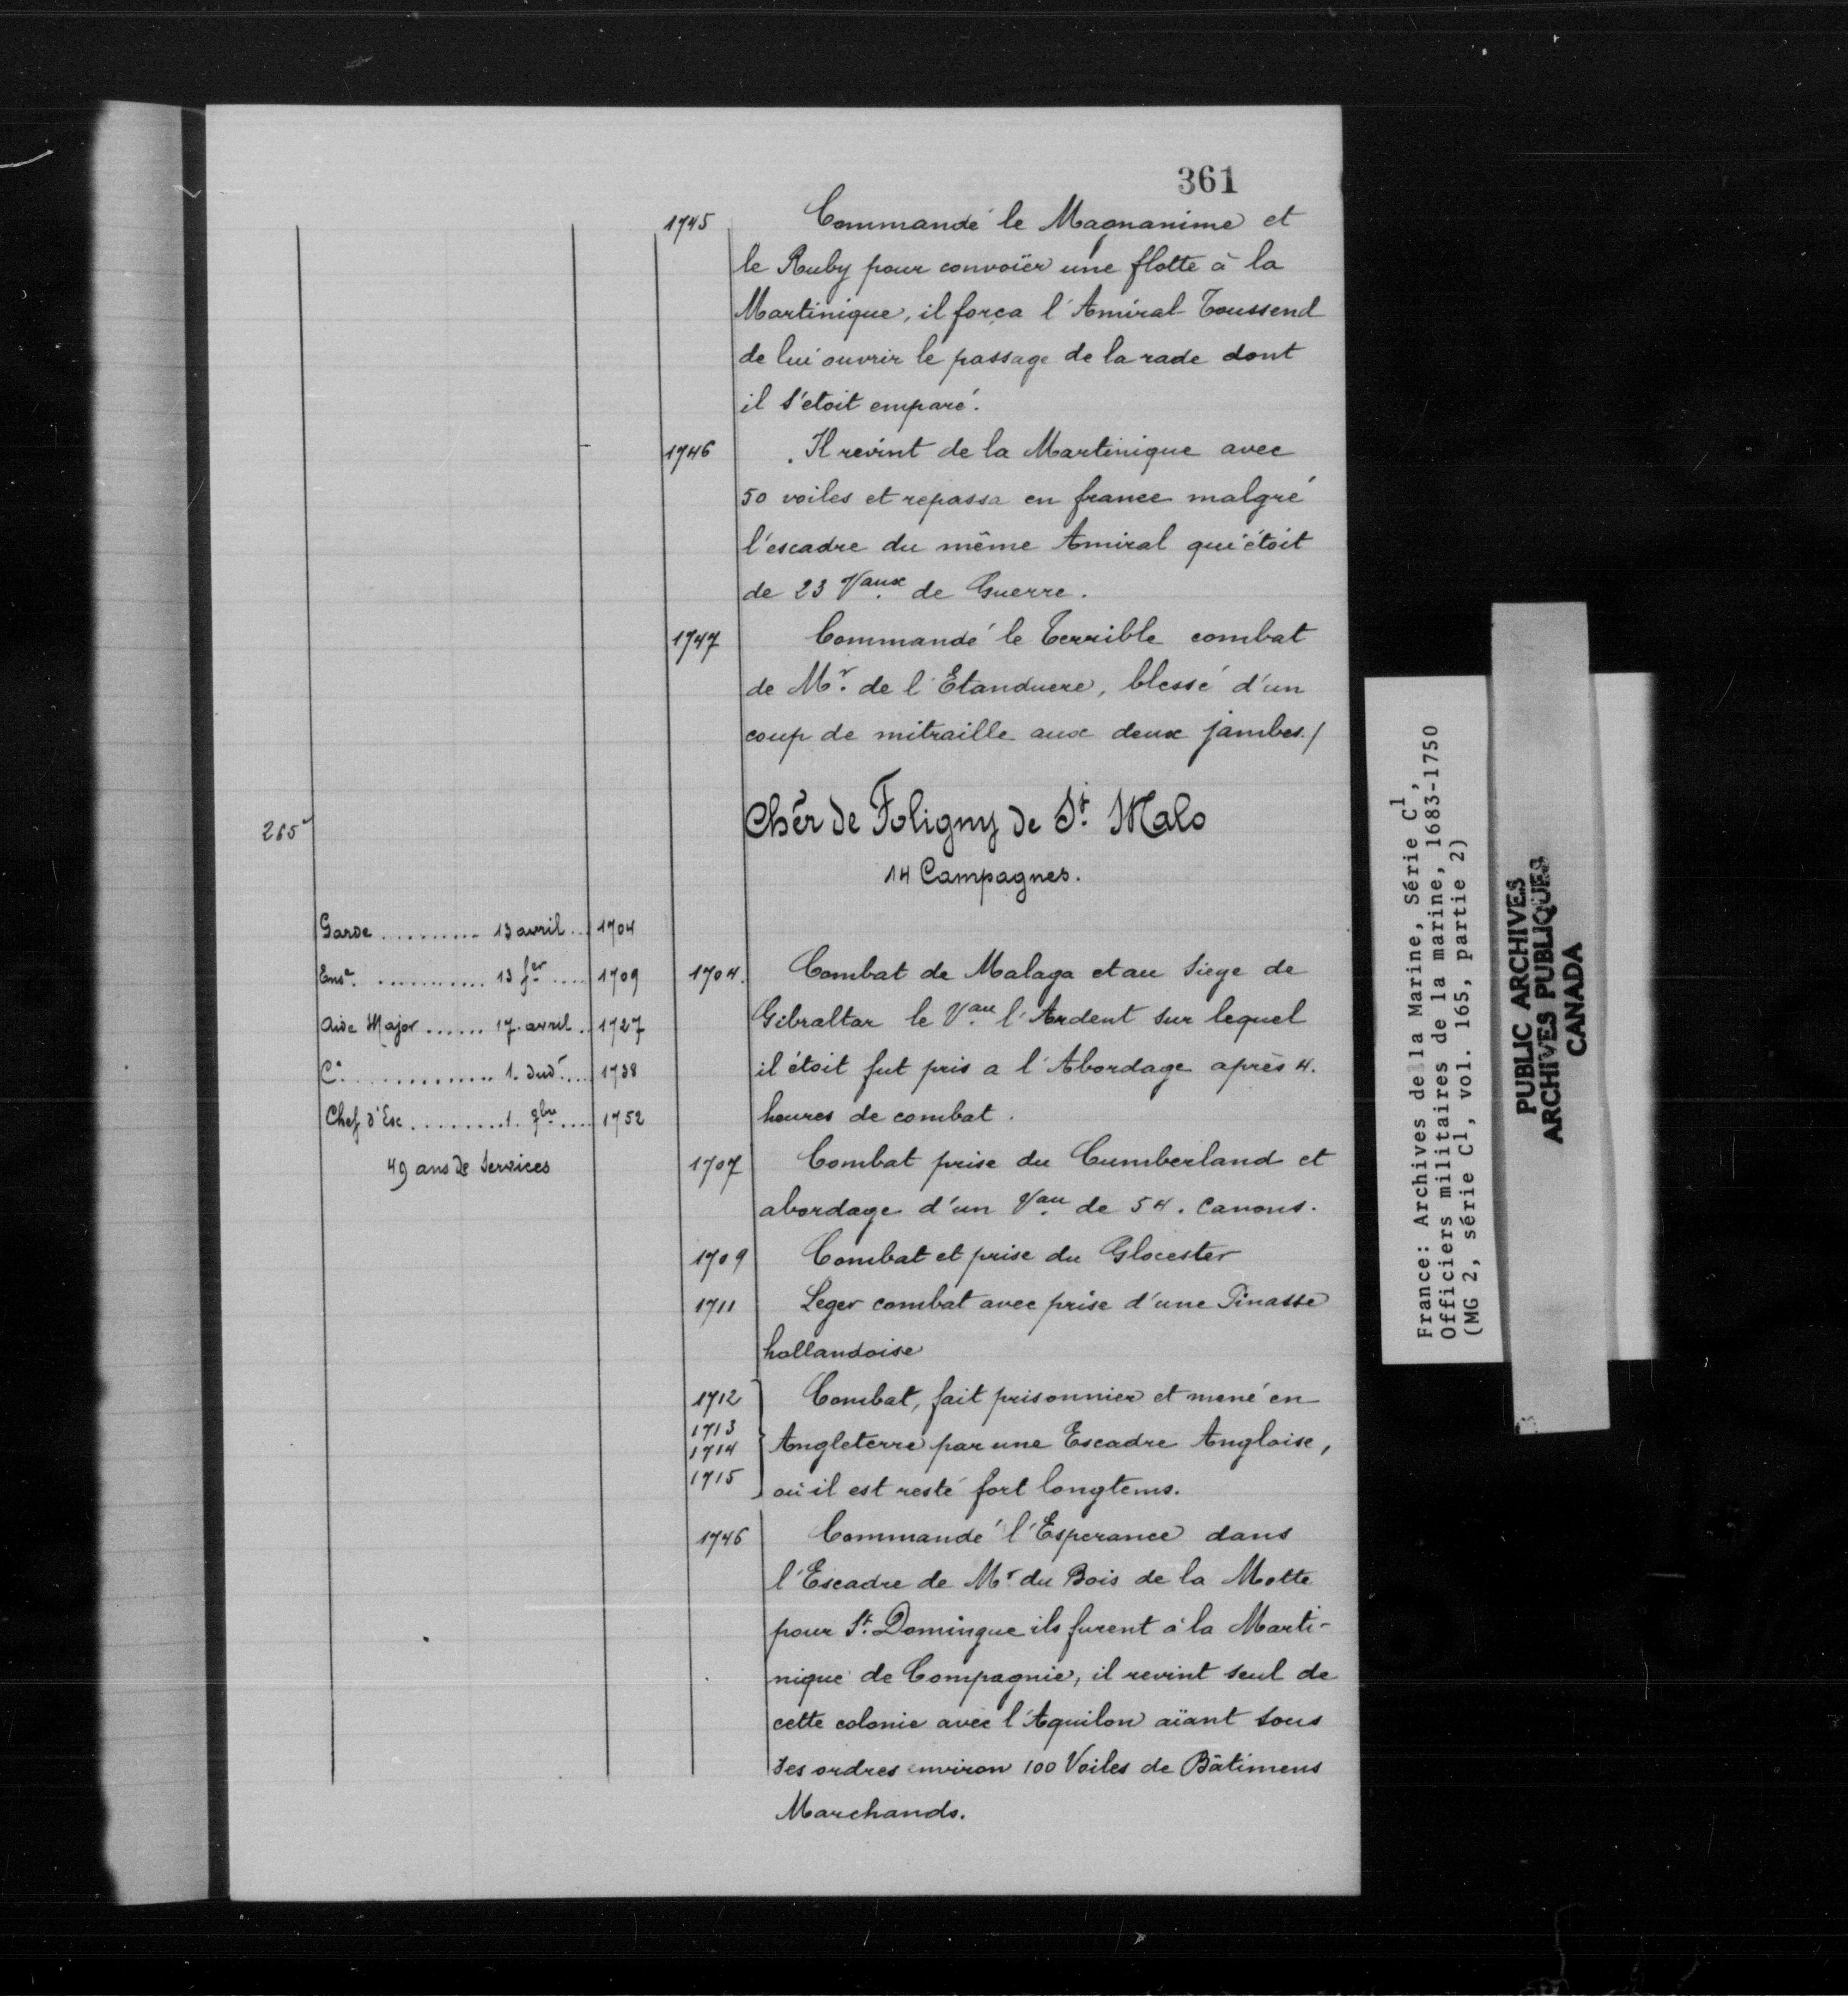 361
1745 Commandé le Magnanime et
le Ruby pour convoïer une flotte à la
Martinique, il força l'Amiral Toussend
de lui ouvrir le passage de la rade dont
il s'etoit emparé.
1746 Il revint de la Martinique avec
50 voiles et repassa en france malgré
l'escadre du même Amiral qui étoit
de 23 Vaux de Guerre.
1747 Commandé le Terrible combat
de Mr. de l'Etanduere, blessé d'un
coup de mitraille aux deux jambes./
265 Chër de Foligny de St. Malo
14 Campagnes.
Garde .......... 13 avril .. 1704
Ense. ........... 13 fer .... 1709
Aide Major ...... 17. avril . 1727
Ce. .............. 1. dud. .... 1738
Chef d'Esc ......... 1. 7bre .... 1752
49 ans de Services
1704. Combat de Malaga et au Siege de
Gibraltar le Vau. l'Ardent sur lequel
il étoit fut pris a l'Abordage après 4.
heures de combat.
1707 Combat prise du Cumberland et
abordage d'un Vau. de 54. Canons.
1709 Combat et prise du Glocester
1711 Leger combat avec prise d'une Pinasse
hollandoise
1712 Combat, fait prisonnier et mené en
1713
1714 Angleterre par une Escadre Angloise,
1715 où il est resté fort longtems.
1746 Commandé l'Esperance dans
l'Escadre de Mr. du Bois de la Motte
pour St. Domingue ils furent à la Marti-
nique de Compagnie, il revint seul de
cette colonie avec l'Aquilon aïant sous
ses ordres environ 100 Voiles de Bâtimens
Marchands.
France: Archives de la Marine, Série C1,
Officiers militaires de la marine, 1683-1750
(MG 2, série C1, vol. 165, partie 2)
PUBLIC ARCHIVES
ARCHIVES PUBLIQUES
CANADA